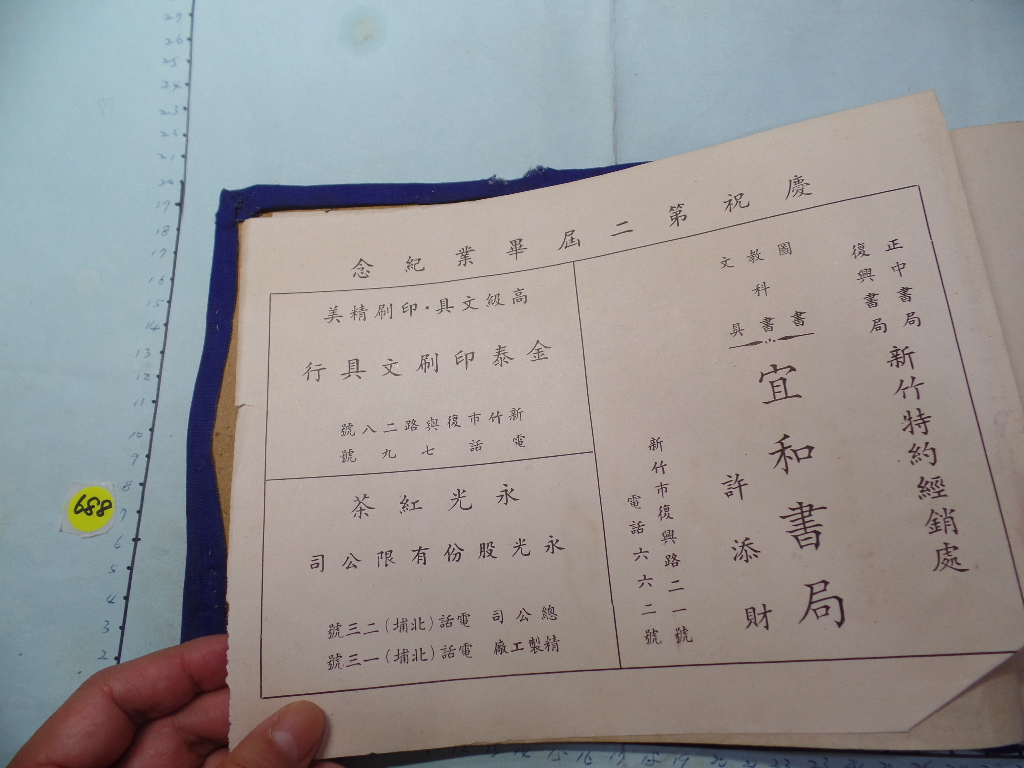 慶祝第二屆畢業紀念
正中書局
復興書局
新竹特約經銷處
圖書
教科書
文具
宜和書局
許添財
新竹市復興路二一號
電話六六二號
高級文具·印刷精美
金泰印刷文具行
新竹市復興路二八號
電話七九號
永光紅茶
永光股份有限公司
總公司 電話(北埔)二三號
精製工廠 電話(北埔)一三號
688
27
26
25
24
23
22
21
20
19
18
17
16
15
14
13
12
11
10
9
8
7
6
5
4
3
2